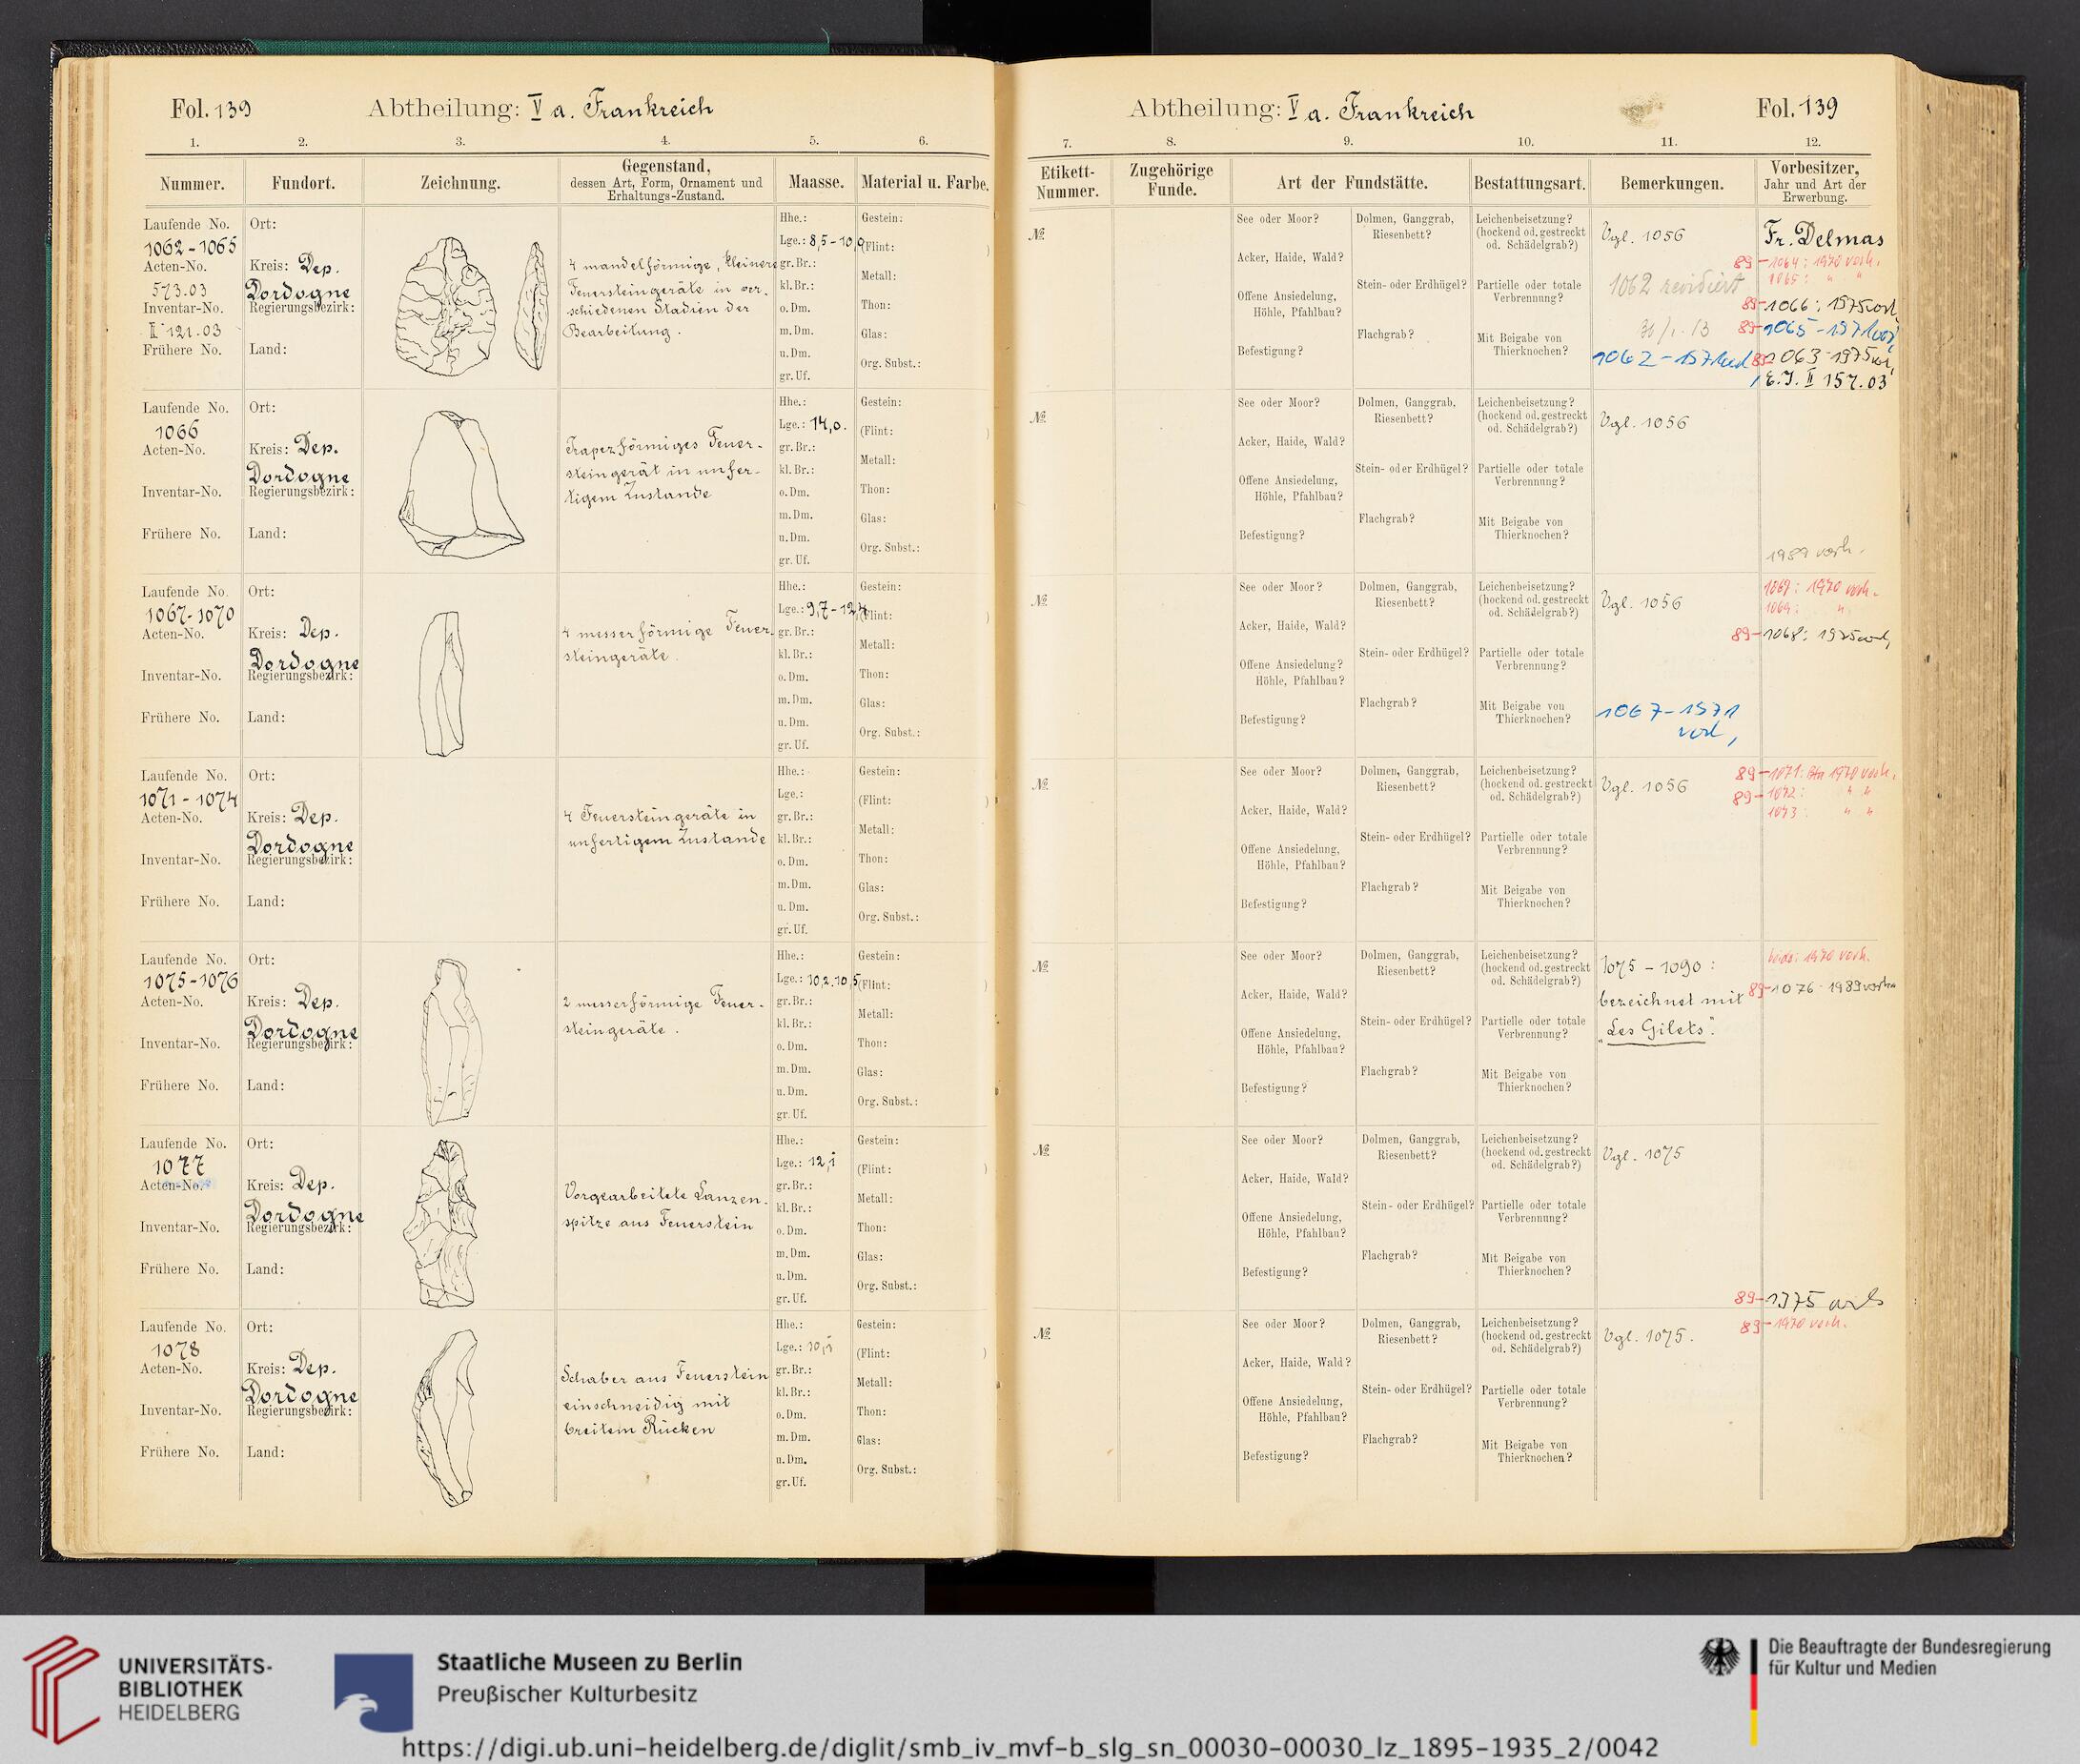 Fol. 139
Abtheilung: V a. Frankreich
1. 2. 3. 4. 5. 6.
Nummer. Fundort. Zeichnung. Gegenstand, dessen Art, Form, Ornament und Erhaltungs-Zustand. Maasse. Material u. Farbe.
Laufende No. 1062-1065
Acten-No. 573.03
Inventar-No. II 121.03
Frühere No.
Ort:
Kreis: Dep. Dordogne
Regierungsbezirk:
Land:
4 mandelförmige, kleinere
Feuersteingeräte in ver-
schiedenen Stadien der
Bearbeitung.
Hhe.:
Lge.: 8,5-10,9
gr. Br.:
kl. Br.:
o. Dm.
m. Dm.
u. Dm.
gr. Uf.
Gestein:
(Flint: )
Metall:
Thon:
Glas:
Org. Subst.:
Laufende No. 1066
Acten-No.
Inventar-No.
Frühere No.
Ort:
Kreis: Dep. Dordogne
Regierungsbezirk:
Land:
Trapezförmiges Feuer-
steingerät in unfer-
tigem Zustande
Hhe.:
Lge.: 14,0.
gr. Br.:
kl. Br.:
o. Dm.
m. Dm.
u. Dm.
gr. Uf.
Gestein:
(Flint: )
Metall:
Thon:
Glas:
Org. Subst.:
Laufende No. 1067-1070
Acten-No.
Inventar-No.
Frühere No.
Ort:
Kreis: Dep. Dordogne
Regierungsbezirk:
Land:
4 messerförmige Feuer-
steingeräte.
Hhe.:
Lge.: 9,7-12,4
gr. Br.:
kl. Br.:
o. Dm.
m. Dm.
u. Dm.
gr. Uf.
Gestein:
(Flint: )
Metall:
Thon:
Glas:
Org. Subst.:
Laufende No. 1071-1074
Acten-No.
Inventar-No.
Frühere No.
Ort:
Kreis: Dep. Dordogne
Regierungsbezirk:
Land:
4 Feuersteingeräte in
unfertigem Zustande
Hhe.:
Lge.:
gr. Br.:
kl. Br.:
o. Dm.
m. Dm.
u. Dm.
gr. Uf.
Gestein:
(Flint: )
Metall:
Thon:
Glas:
Org. Subst.:
Laufende No. 1075-1076
Acten-No.
Inventar-No.
Frühere No.
Ort:
Kreis: Dep. Dordogne
Regierungsbezirk:
Land:
2 messerförmige Feuer-
steingeräte.
Hhe.:
Lge.: 10,2.10,5
gr. Br.:
kl. Br.:
o. Dm.
m. Dm.
u. Dm.
gr. Uf.
Gestein:
(Flint: )
Metall:
Thon:
Glas:
Org. Subst.:
Laufende No. 1077
Acten-No.
Inventar-No.
Frühere No.
Ort:
Kreis: Dep. Dordogne
Regierungsbezirk:
Land:
Vorgearbeitete Lanzen-
spitze aus Feuerstein
Hhe.:
Lge.: 12,1
gr. Br.:
kl. Br.:
o. Dm.
m. Dm.
u. Dm.
gr. Uf.
Gestein:
(Flint: )
Metall:
Thon:
Glas:
Org. Subst.:
Laufende No. 1078
Acten-No.
Inventar-No.
Frühere No.
Ort:
Kreis: Dep. Dordogne
Regierungsbezirk:
Land:
Schaber aus Feuerstein
einschneidig mit
breitem Rücken
Hhe.:
Lge.: 10,1
gr. Br.:
kl. Br.:
o. Dm.
m. Dm.
u. Dm.
gr. Uf.
Gestein:
(Flint: )
Metall:
Thon:
Glas:
Org. Subst.:
Abtheilung: V a. Frankreich
Fol. 139
7. 8. 9. 10. 11. 12.
Etikett-Nummer. Zugehörige Funde. Art der Fundstätte. Bestattungsart. Bemerkungen. Vorbesitzer, Jahr und Art der Erwerbung.
№
See oder Moor?
Acker, Haide, Wald?
Offene Ansiedelung, Höhle, Pfahlbau?
Befestigung?
Dolmen, Ganggrab, Riesenbett?
Stein- oder Erdhügel?
Flachgrab?
Leichenbeisetzung? (hockend od. gestreckt od. Schädelgrab?)
Partielle oder totale Verbrennung?
Mit Beigabe von Thierknochen?
Vgl. 1056
1062 revidiert
1062-1571
Fr. Delmas
89-1064: 1970 vorh.
1065: " "
89-1066: 1975 vorh
89-1065-1571
1063-1975
E.J. II 157.03
№
See oder Moor?
Acker, Haide, Wald?
Offene Ansiedelung, Höhle, Pfahlbau?
Befestigung?
Dolmen, Ganggrab, Riesenbett?
Stein- oder Erdhügel?
Flachgrab?
Leichenbeisetzung? (hockend od. gestreckt od. Schädelgrab?)
Partielle oder totale Verbrennung?
Mit Beigabe von Thierknochen?
Vgl. 1056
1989 vorh.
№
See oder Moor?
Acker, Haide, Wald?
Offene Ansiedelung? Höhle, Pfahlbau?
Befestigung?
Dolmen, Ganggrab, Riesenbett?
Stein- oder Erdhügel?
Flachgrab?
Leichenbeisetzung? (hockend od. gestreckt od. Schädelgrab?)
Partielle oder totale Verbrennung?
Mit Beigabe von Thierknochen?
Vgl. 1056
1067-1571
1970 vorh.
1069: "
89-1068: 1975
№
See oder Moor?
Acker, Haide, Wald?
Offene Ansiedelung, Höhle, Pfahlbau?
Befestigung?
Dolmen, Ganggrab, Riesenbett?
Stein- oder Erdhügel?
Flachgrab?
Leichenbeisetzung? (hockend od. gestreckt od. Schädelgrab?)
Partielle oder totale Verbrennung?
Mit Beigabe von Thierknochen?
Vgl. 1056
89-1071: 1970 vorh.
89-1072: " "
1073: " "
№
See oder Moor?
Acker, Haide, Wald?
Offene Ansiedelung, Höhle, Pfahlbau?
Befestigung?
Dolmen, Ganggrab, Riesenbett?
Stein- oder Erdhügel?
Flachgrab?
Leichenbeisetzung? (hockend od. gestreckt od. Schädelgrab?)
Partielle oder totale Verbrennung?
Mit Beigabe von Thierknochen?
1075-1090:
bezeichnet mit
„Les Gilets".
beide: 1970 vorh.
89-1076-1989 vorh
№
See oder Moor?
Acker, Haide, Wald?
Offene Ansiedelung, Höhle, Pfahlbau?
Befestigung?
Dolmen, Ganggrab, Riesenbett?
Stein- oder Erdhügel?
Flachgrab?
Leichenbeisetzung? (hockend od. gestreckt od. Schädelgrab?)
Partielle oder totale Verbrennung?
Mit Beigabe von Thierknochen?
Vgl. 1075
89-1975
№
See oder Moor?
Acker, Haide, Wald?
Offene Ansiedelung, Höhle, Pfahlbau?
Befestigung?
Dolmen, Ganggrab, Riesenbett?
Stein- oder Erdhügel?
Flachgrab?
Leichenbeisetzung? (hockend od. gestreckt od. Schädelgrab?)
Partielle oder totale Verbrennung?
Mit Beigabe von Thierknochen?
Vgl. 1075.
89-1970 vorh.
UNIVERSITÄTS-
BIBLIOTHEK
HEIDELBERG
Staatliche Museen zu Berlin
Preußischer Kulturbesitz
Die Beauftragte der Bundesregierung
für Kultur und Medien
https://digi.ub.uni-heidelberg.de/diglit/smb_iv_mvf-b_slg_sn_00030-00030_lz_1895-1935_2/0042